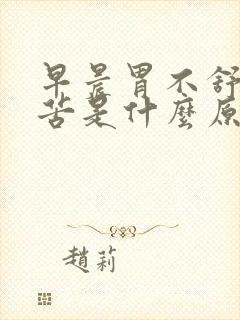 早晨胃不舒
苦是什麽原
趙莉